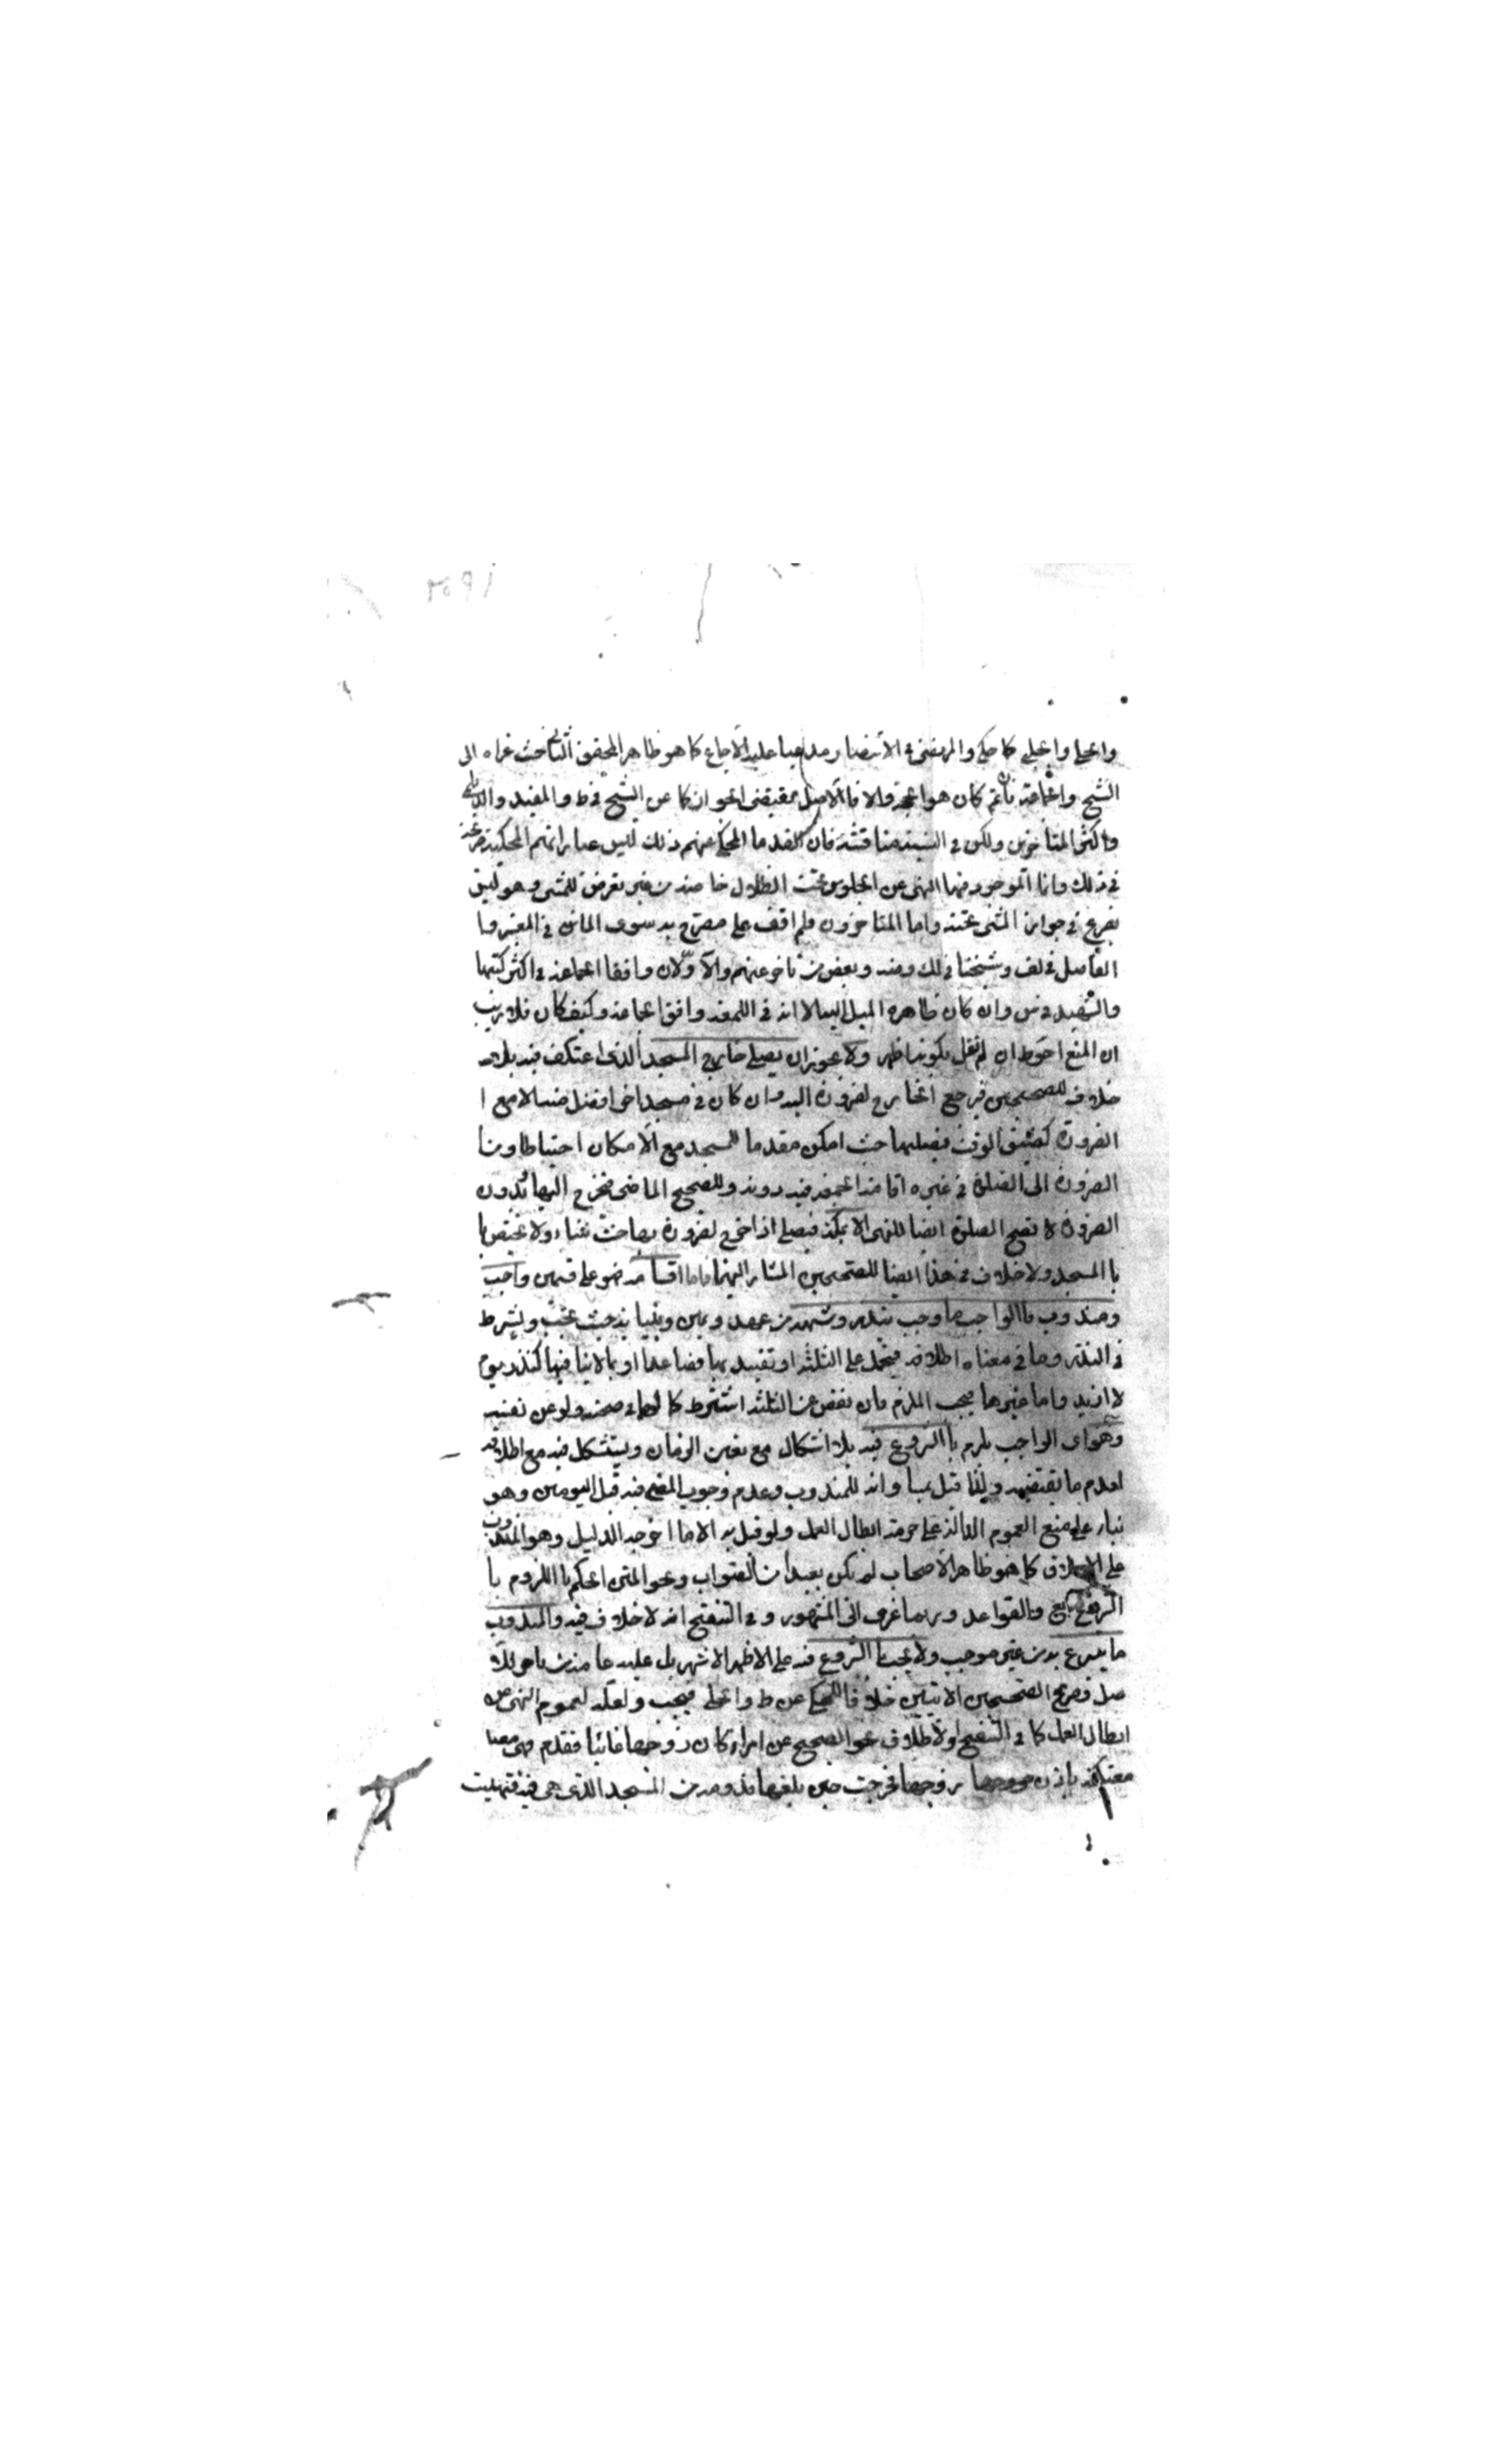 والحلي والحلي كما حكي والمرتضى في الانتصار مدعيا عليه الاجماع كما هو ظاهر المحقق الثاني حيث عزاه الى
الشيخ والجماعة فان تم كان هو الحجة والا فالاصل يقتضي الجواز كما عن الشيخ في ط والمفيد والديلمي
واكثر المتاخرين ولكن في النسبة مناقشة فان القدما المحكي عنهم ذلك ليس عباراتهم المحكية صريحة
في ذلك وانما الموجود فيها النهي عن الجلوس تحت الظلال خاصة من غير تعرض للمشي وهو ليس
بصريح في جواز المشي تحته واما المتاخرون فلم اقف على مصرح به سوى الماتن في المعتبر وا
الفاضل في لف وشيخنا في لك وضه وبعض من تاخر عنهم والاولان وافقا الجماعة في اكثر كتبهما
والشهيد في س وان كان ظاهره الميل اليه الا انه في اللمعة وافق الجماعة وكيف كان فلا ريب
ان المنع احوط ان لم نقل بكونه اظهر ولا يجوز ان يصلي خارج المسجد الذي اعتكف فيه بلا
خلاف للصحيحين فيرجع الخارج لضرورة اليه وان كان في مسجد اخر افضل منه الا مع ا
الضرورة كضيق الوقت فيصليها حيث امكن مقدما للمسجد مع الامكان احتياطا ومن ا
الضرورة الى الصلوة في غيره اقامة الجمعة فيه دونه وللصحيح الماضي فيخرج اليها وبدون
الضرورة لا تصح الصلوة ايضا للنهي الا بمكة فيصلي اذا خرج لضرورة بها حيث شاء ولا يختص با
با المسجد ولا خلاف في هذا ايضا للصحيحين المشار اليهما واما اقسامه فهو على قسمين واجب
ومندوب فاالواجب ما وجب بنذر وشبهه من عهد ويمين ونيابة حيث تجب ويشرط
في النذر وما في معناه اطلاقه فيحمل على الثلثة او تقييده بها فصاعدا او بما لا ينافيها كنذر يوم
لا ازيد واما غيرها فبحسب الملزم فان نقص عن الثلثة اشترط كما لها في صحته ولو عن نفسه
وهو اي الواجب يلزم با الشروع فيه بلا اشكال مع تعين الزمان ويستشكل فيه مع اطلاقه
لعدم ما يقتضيه ولذا قيل بمساواته للمندوب وعدم وجوب المضي فيه قبل اليومين وهو
بناء على منع العموم الدال على حرمة ابطال العمل ولو قيل به الا ما اخرجه الدليل وهو المندوب
على الاطلاق كما هو ظاهر الاصحاب لم يكن بعيدا من الصواب ونحو المتن الحكم با اللزوم با
الشروع يع والقواعد وربما عزي الى المشهور وفي التنقيح انه لا خلاف فيه والمندوب
ما يتبرع به من غير موجب ولا يجب با الشروع فيه على الاظهر الاشهر بل عليه عامة من تاخر للا
صل وصريح الصحيحين الاتيين خلافا للمحكي عن ط والحلبي فيجب ولعله لعموم النهي عن
ابطال العمل كما في التنقيح ولاطلاق نحو الصحيح عن امراة كان زوجها غائبا فقدم وهي
معتكفة باذن زوجها فخرجت حين بلغها قدومه من المسجد الذي هي فيه فتهيئت